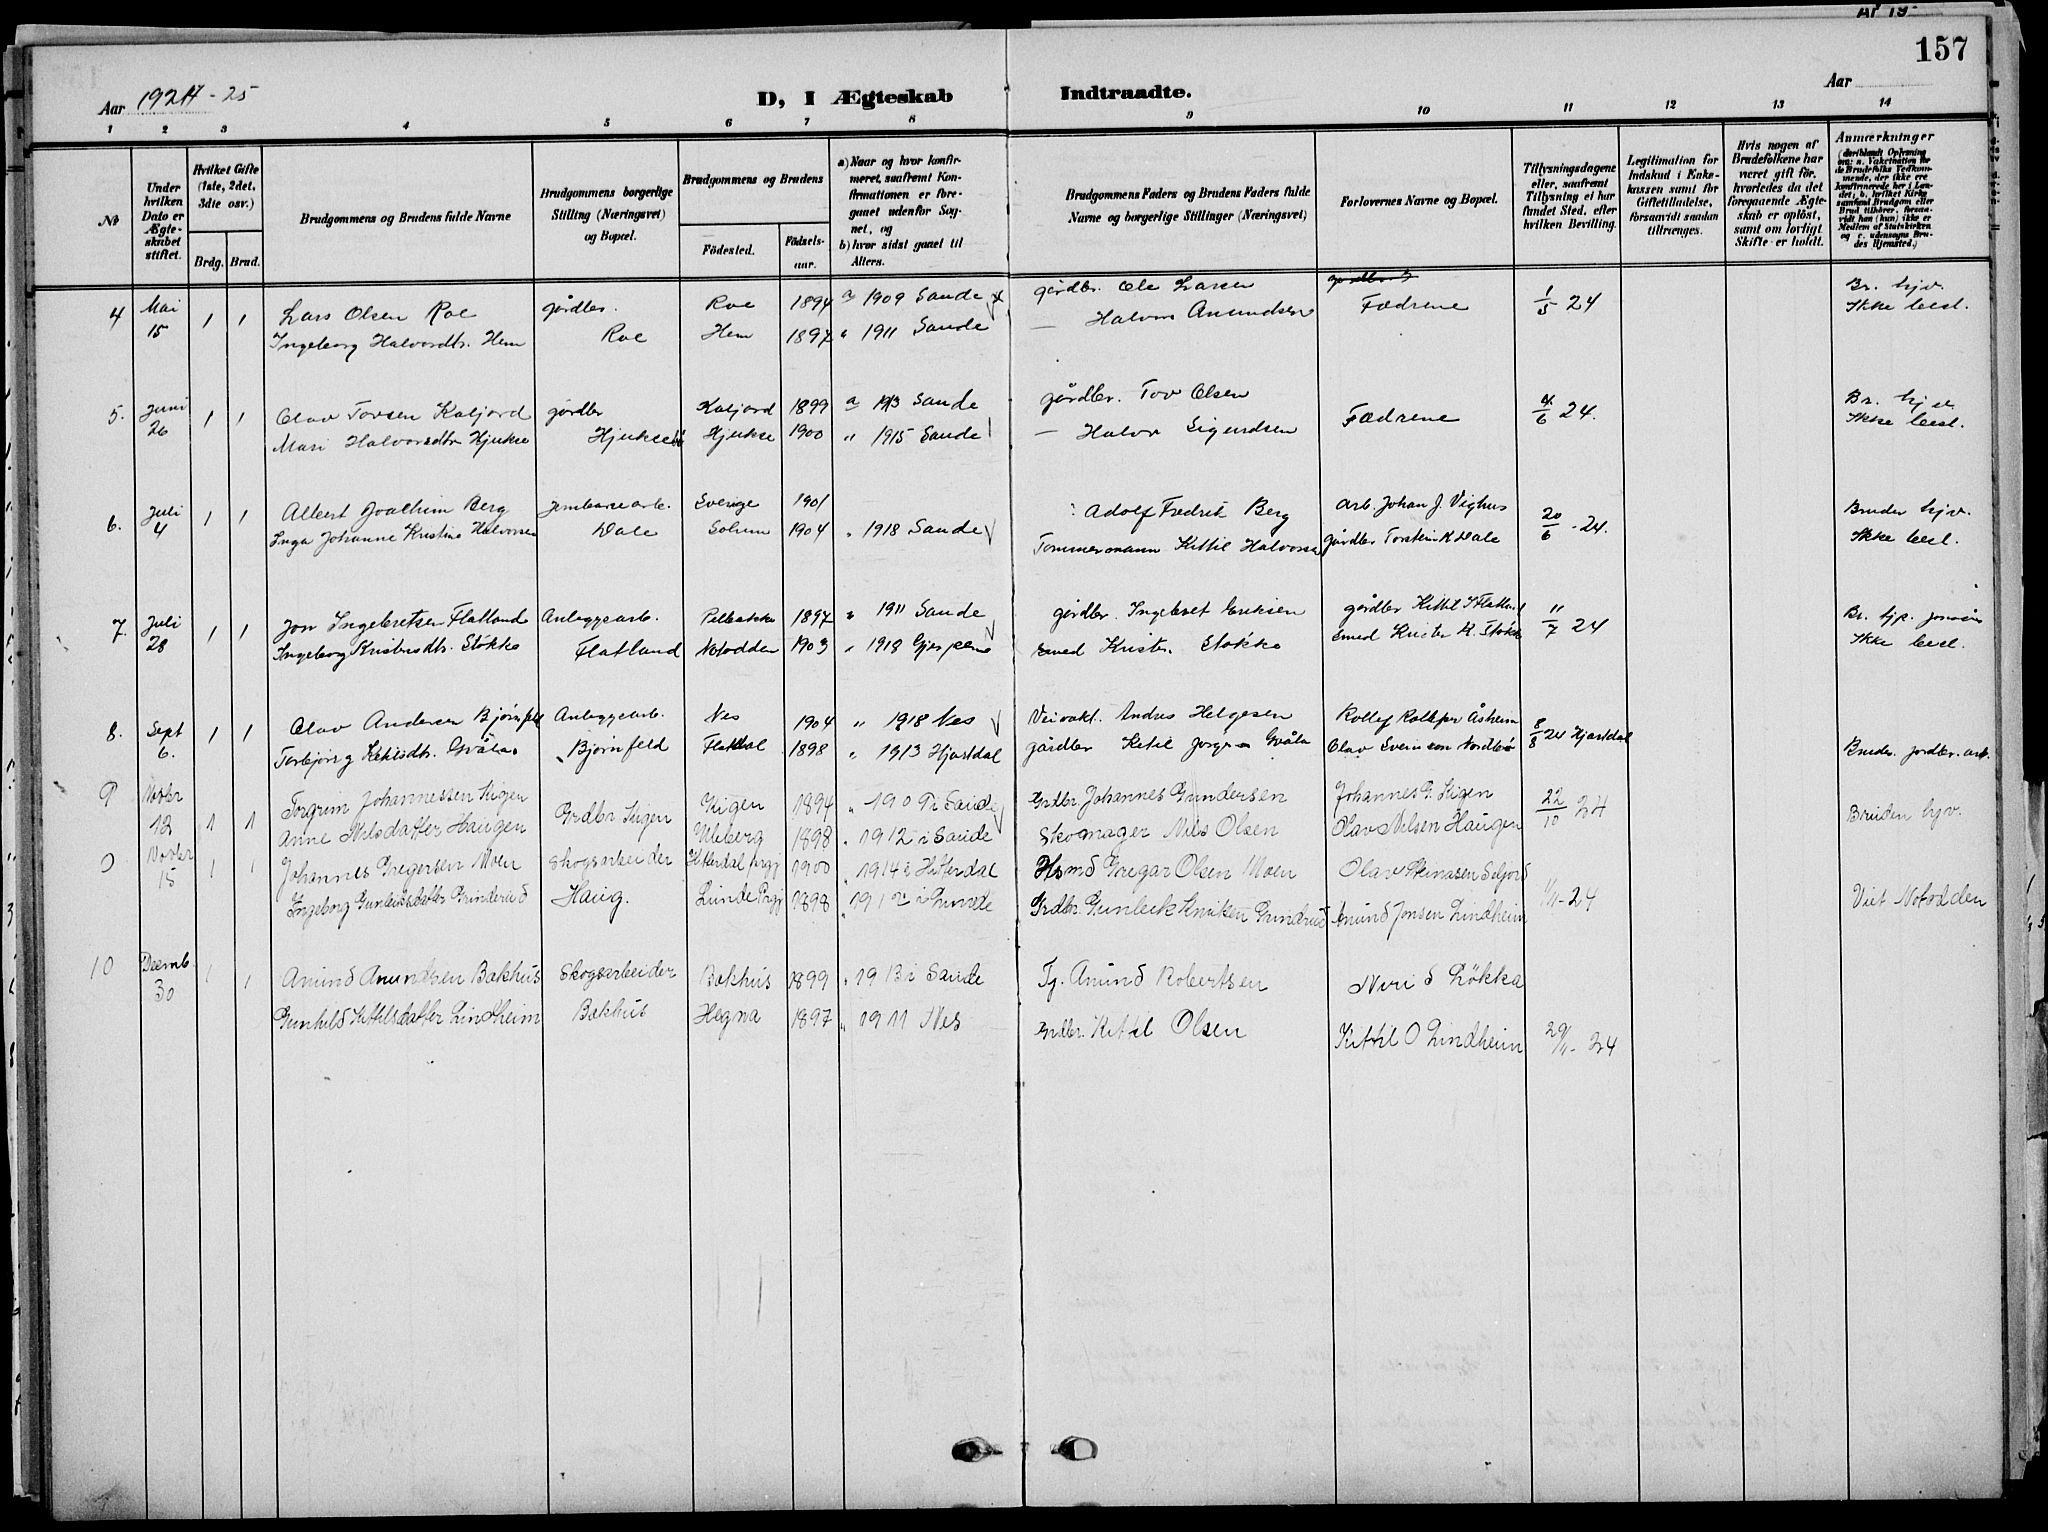 157
Aar 1924-25
D, I Ægteskab Indtraadte.
Aar
1 2 3 4 5 6 7 8 9 10 11 12 13 14
No
Under hvilken Dato er Ægteskabet stiftet.
Hvilket Gifte (1ste, 2det, 3die osv.)
Brdg. Brud.
Brudgommens og Brudens fulde Navne
Brudgommens borgerlige Stilling (Næringsvei) og Bopæl.
Brudgommens og Brudens
Födested. Födselsaar.
a) Naar og hvor konfirmeret, saafremt Konfirmationen er foregaaet udenfor Sognet, og
b) hvor sidst gaaet til Alters.
Brudgommens Faders og Brudens Faders fulde Navne og borgerlige Stillinger (Næringsvei)
Forlovernes Navne og Bopæl.
Tillysningsdagene eller, saafremt Tillysning ei har fundet Sted, efter hvilken Bevilling.
Legitimation for Indskud i Enkekassen samt for Giftetilladelse, forsaavidt saadan tiltrænges.
Hvis nogen af Brudefolkene har været gift før, hvorledes da det foregaaende Ægteskab er oplöst, samt om lovligt Skifte er holdt.
Anmærkninger
4 Mai 15 1 1 Lars Olsen Roe gårdbr. Roe 1894 a 1909 Sande gårdbr. Ole Larsen Fædrene 1/5 24 Br. hjv.
Ingeborg Halvordtr. Hem Roe Hem 1897 " 1911 Sande — Halvor Amundsen Ikke besl.
5. Juni 26 1 1 Olav Tovsen Kaljord gårdbr Kaljord 1899 a 1913 Sande gårdbr. Tov Olsen Fædrene 4/6 24. Br. hjv.
Mari Halvorsdtr Hjukse Hjuksebø Hjukse 1900 " 1915 Sande — Halvor Sigurdsen Ikke besl.
6. Juli 4 1 1 Albert Joachim Berg Jernbanearb. Sverige 1901 Adolf Fredrik Berg Arb. Johan J. Vighus 20/6 - 24. Bruden hjv.
Inga Johanne Kristine Halvorsen Dale Solum 1904 " 1918 Sande Tømmermann Kittil Halvorsen gårdbr Torstein K Dale Ikke besl.
7. Juli 28 1 1 Jon Ingebretsen Flatland Anleggsarb. 1897 " 1911 Sande gårdbr. Ingebret Eriksen gårdbr Kittil Flatland 11/7 24 Br. hjp.
Ingeborg Kristensdtr. Stokke Flatland Notodden 1903 " 1918 Gjerpen smed Kristen Stokke smed Kristen Stokke Ikke besl.
8. Sept 6. 1 1 Olav Andersen Bjørnfeld Anleggsarb. Nes 1904 " 1918 Nes Veivokt. Andres Helgesen Åsheim 8/8 24 Hjartdal
Torbjørg Ketilsdtr. Gvåla Bjørnfeld Flatdal 1898 " 1913 Hjartdal gårdbr Ketil Gvåla Olav Sveinson Nordbø Bruden. jordbr. arb.
9 Novbr 12 1 1 Torgrim Johannessen Stigen Grdbr Stigen Stigen 1894 " 1909 i Saude Grdbr. Johannes Gundersen Johannes G. Stigen 22/10 24 Bruden hjv.
Anne Nilsdatter Haugen Uleberg 1898 " 1912 i Saude Skomager Nils Olsen Olav Nilsen Haugen
Novbr 15 1 1 Johannes Gregersen Moen Skogsarbeider Hitterdal prgj 1900 " 1914 i Hitterdal Hsmd Gregar Olsen Moen Olav Steinasen Seljord 1/11 - 24
Ingeborg Gunleiksdatter Grinderud Haug. Lunde Prgj 1898 " 1912 i Lunde Grdbr. Gunleik Knutsen Grinderud Amund Jonsen Lindheim Viet Notodden
10 Decmb. 30 1 1 Amund Amundsen Bakhus Skogsarbeider Bakhus 1899 " 1913 i Saude Tj. Amund Robertsen Løkka 29/11 - 24
Gunhild Kittilsdatter Lindheim Bakhus Hegna 1897 " 1911 Nes Grdbr. Kittil Olsen Kittil O Lindheim